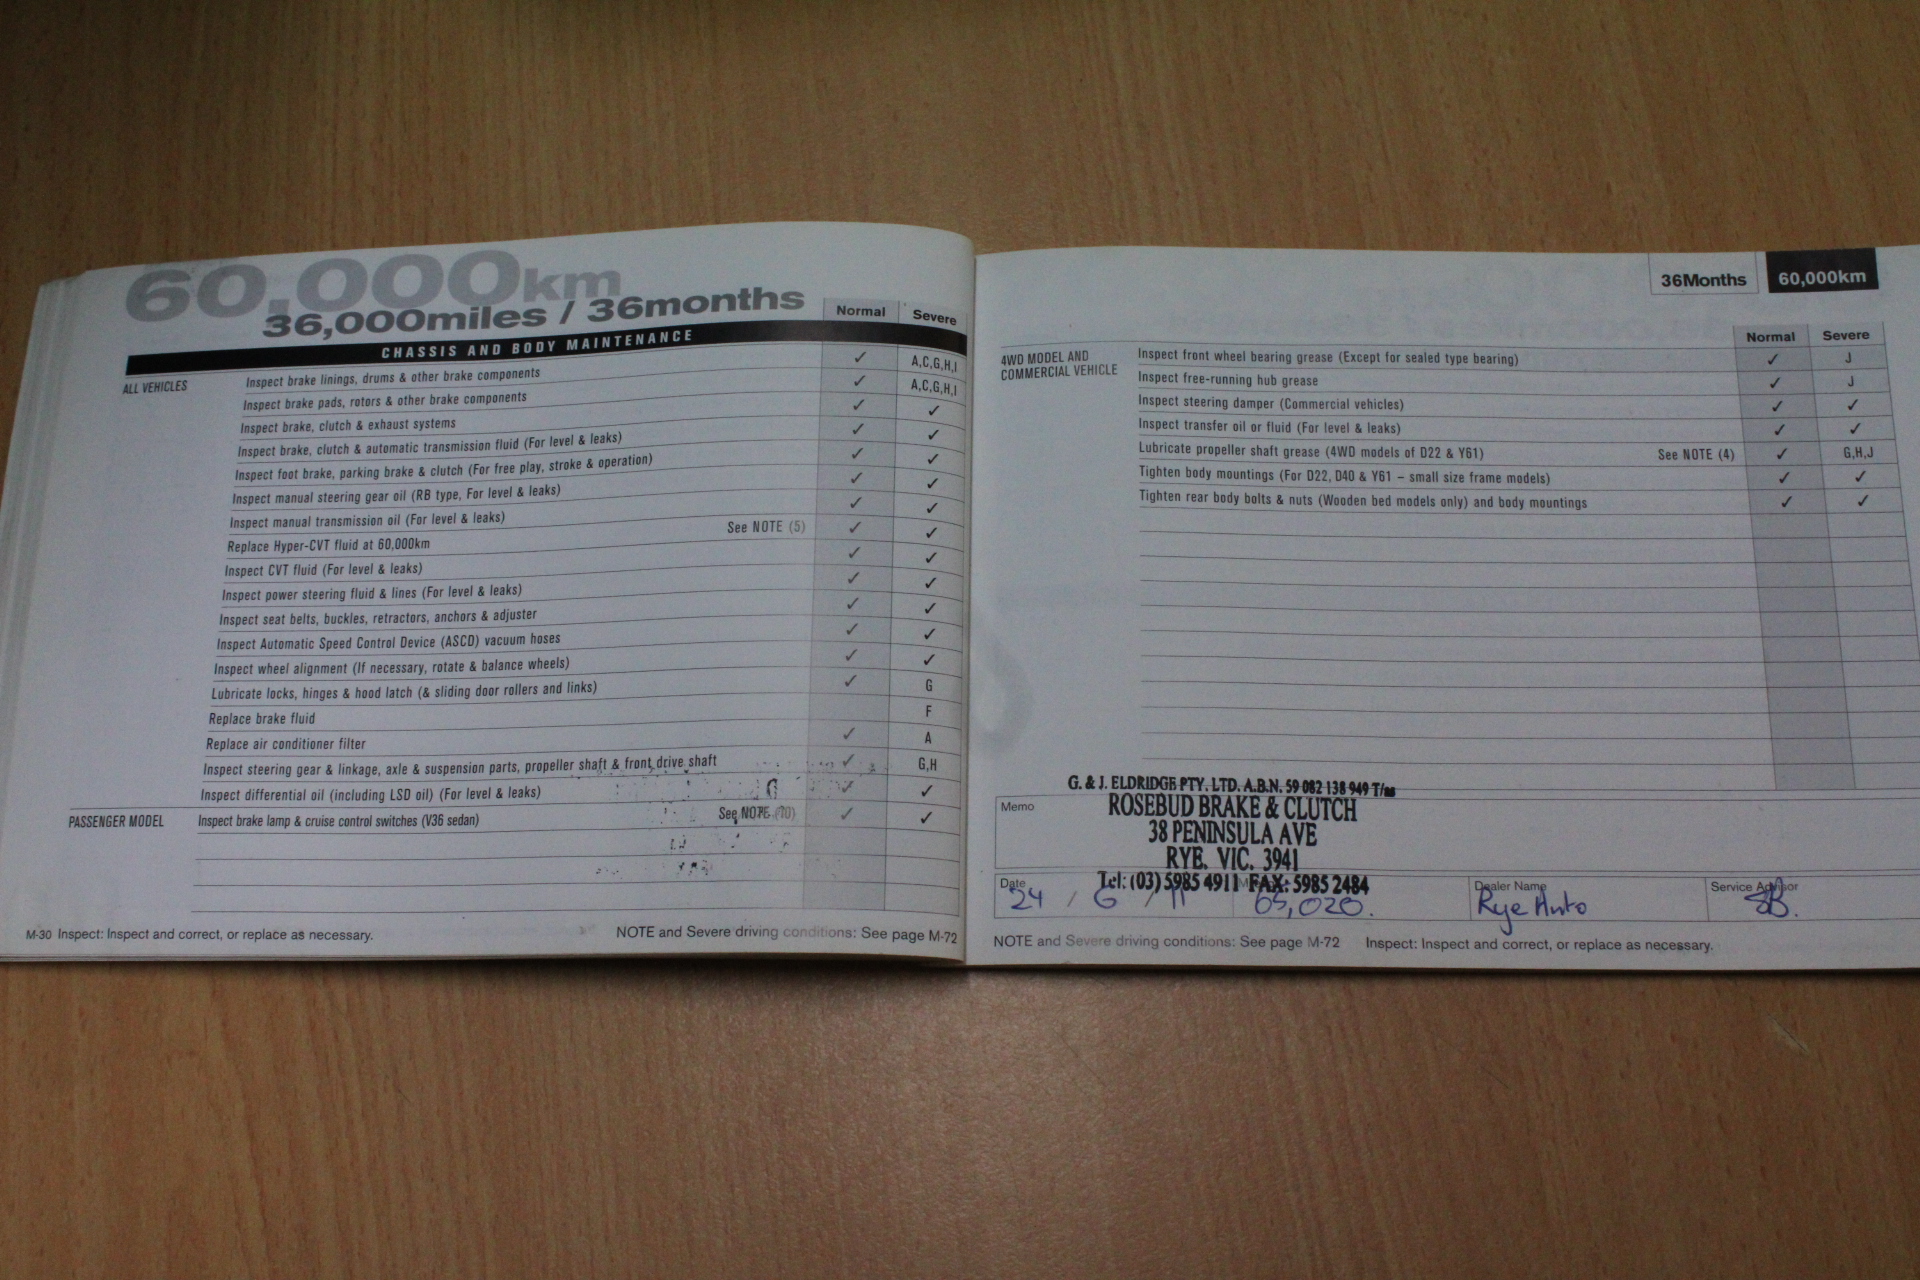 60,000km
36,000miles / 36months
Normal Severe
CHASSIS AND BODY MAINTENANCE
ALL VEHICLES Inspect brake linings, drums & other brake components ✓ A,C,G,H,I
Inspect brake pads, rotors & other brake components ✓ A,C,G,H,I
Inspect brake, clutch & exhaust systems ✓ ✓
Inspect brake, clutch & automatic transmission fluid (For level & leaks) ✓ ✓
Inspect foot brake, parking brake & clutch (For free play, stroke & operation) ✓ ✓
Inspect manual steering gear oil (RB type, For level & leaks) ✓ ✓
Inspect manual transmission oil (For level & leaks) ✓ ✓
Replace Hyper-CVT fluid at 60,000km See NOTE (5) ✓ ✓
Inspect CVT fluid (For level & leaks) ✓ ✓
Inspect power steering fluid & lines (For level & leaks) ✓ ✓
Inspect seat belts, buckles, retractors, anchors & adjuster ✓ ✓
Inspect Automatic Speed Control Device (ASCD) vacuum hoses ✓ ✓
Inspect wheel alignment (If necessary, rotate & balance wheels) ✓ ✓
Lubricate locks, hinges & hood latch (& sliding door rollers and links) ✓ G
Replace brake fluid F
Replace air conditioner filter ✓ A
Inspect steering gear & linkage, axle & suspension parts, propeller shaft & front drive shaft ✓ G,H
Inspect differential oil (including LSD oil) (For level & leaks) ✓ ✓
PASSENGER MODEL Inspect brake lamp & cruise control switches (V36 sedan) See NOTE (10) ✓ ✓
M-30 Inspect: Inspect and correct, or replace as necessary. NOTE and Severe driving conditions: See page M-72
36Months 60,000km
Normal Severe
4WD MODEL AND
COMMERCIAL VEHICLE
Inspect front wheel bearing grease (Except for sealed type bearing) ✓ J
Inspect free-running hub grease ✓ J
Inspect steering damper (Commercial vehicles) ✓ ✓
Inspect transfer oil or fluid (For level & leaks) ✓ ✓
Lubricate propeller shaft grease (4WD models of D22 & Y61) See NOTE (4) ✓ G,H,J
Tighten body mountings (For D22, D40 & Y61 – small size frame models) ✓ ✓
Tighten rear body bolts & nuts (Wooden bed models only) and body mountings ✓ ✓
G. & J. ELDRIDGE PTY. LTD. A.B.N. 59 082 138 949 T/as
Memo
ROSEBUD BRAKE & CLUTCH
38 PENINSULA AVE
RYE. VIC. 3941
Tel: (03) 5985 4911 FAX: 5985 2484
Date Dealer Name Service Advisor
24 / 6 / 11 65,020. Rye Auto SB.
NOTE and Severe driving conditions: See page M-72 Inspect: Inspect and correct, or replace as necessary.